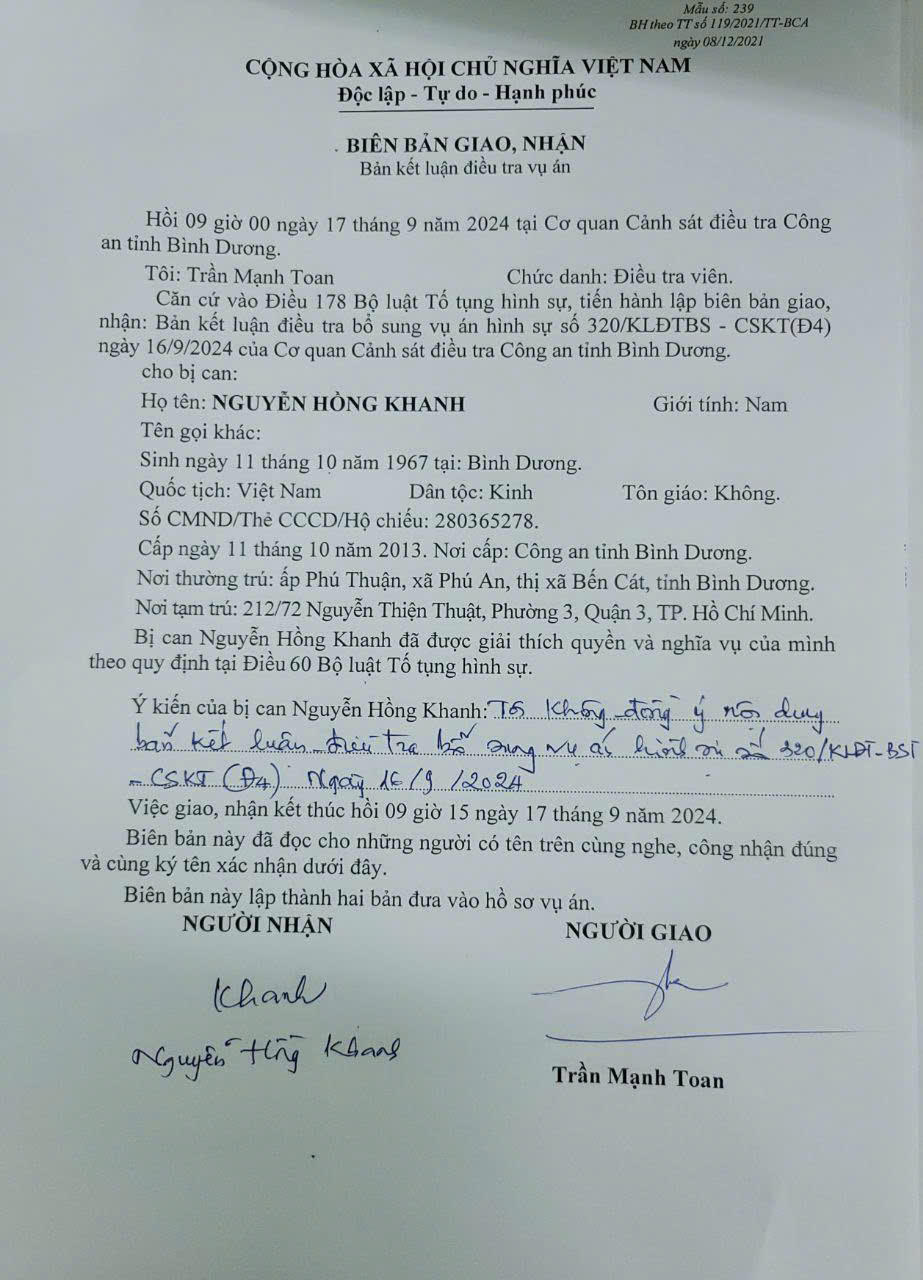 Mẫu số: 239
BH theo TT số 119/2021/TT-BCA
ngày 08/12/2021
CỘNG HÒA XÃ HỘI CHỦ NGHĨA VIỆT NAM
Độc lập - Tự do - Hạnh phúc
BIÊN BẢN GIAO, NHẬN
Bản kết luận điều tra vụ án
Hồi 09 giờ 00 ngày 17 tháng 9 năm 2024 tại Cơ quan Cảnh sát điều tra Công
an tỉnh Bình Dương.
Tôi: Trần Mạnh Toan Chức danh: Điều tra viên.
Căn cứ vào Điều 178 Bộ luật Tố tụng hình sự, tiến hành lập biên bản giao,
nhận: Bản kết luận điều tra bổ sung vụ án hình sự số 320/KLĐTBS - CSKT(Đ4)
ngày 16/9/2024 của Cơ quan Cảnh sát điều tra Công an tỉnh Bình Dương.
cho bị can:
Họ tên: NGUYỄN HỒNG KHANH Giới tính: Nam
Tên gọi khác:
Sinh ngày 11 tháng 10 năm 1967 tại: Bình Dương.
Quốc tịch: Việt Nam Dân tộc: Kinh Tôn giáo: Không.
Số CMND/Thẻ CCCD/Hộ chiếu: 280365278.
Cấp ngày 11 tháng 10 năm 2013. Nơi cấp: Công an tỉnh Bình Dương.
Nơi thường trú: ấp Phú Thuận, xã Phú An, thị xã Bến Cát, tỉnh Bình Dương.
Nơi tạm trú: 212/72 Nguyễn Thiện Thuật, Phường 3, Quận 3, TP. Hồ Chí Minh.
Bị can Nguyễn Hồng Khanh đã được giải thích quyền và nghĩa vụ của mình
theo quy định tại Điều 60 Bộ luật Tố tụng hình sự.
Ý kiến của bị can Nguyễn Hồng Khanh: Tôi không đồng ý nội dung
bản kết luận điều tra bổ sung vụ án hình sự số 320/KLĐT-BST
- CSKT (Đ4) Ngày 16/9/2024
Việc giao, nhận kết thúc hồi 09 giờ 15 ngày 17 tháng 9 năm 2024.
Biên bản này đã đọc cho những người có tên trên cùng nghe, công nhận đúng
và cùng ký tên xác nhận dưới đây.
Biên bản này lập thành hai bản đưa vào hồ sơ vụ án.
NGƯỜI NHẬN NGƯỜI GIAO
Khanh
Nguyễn Hồng Khanh
Trần Mạnh Toan